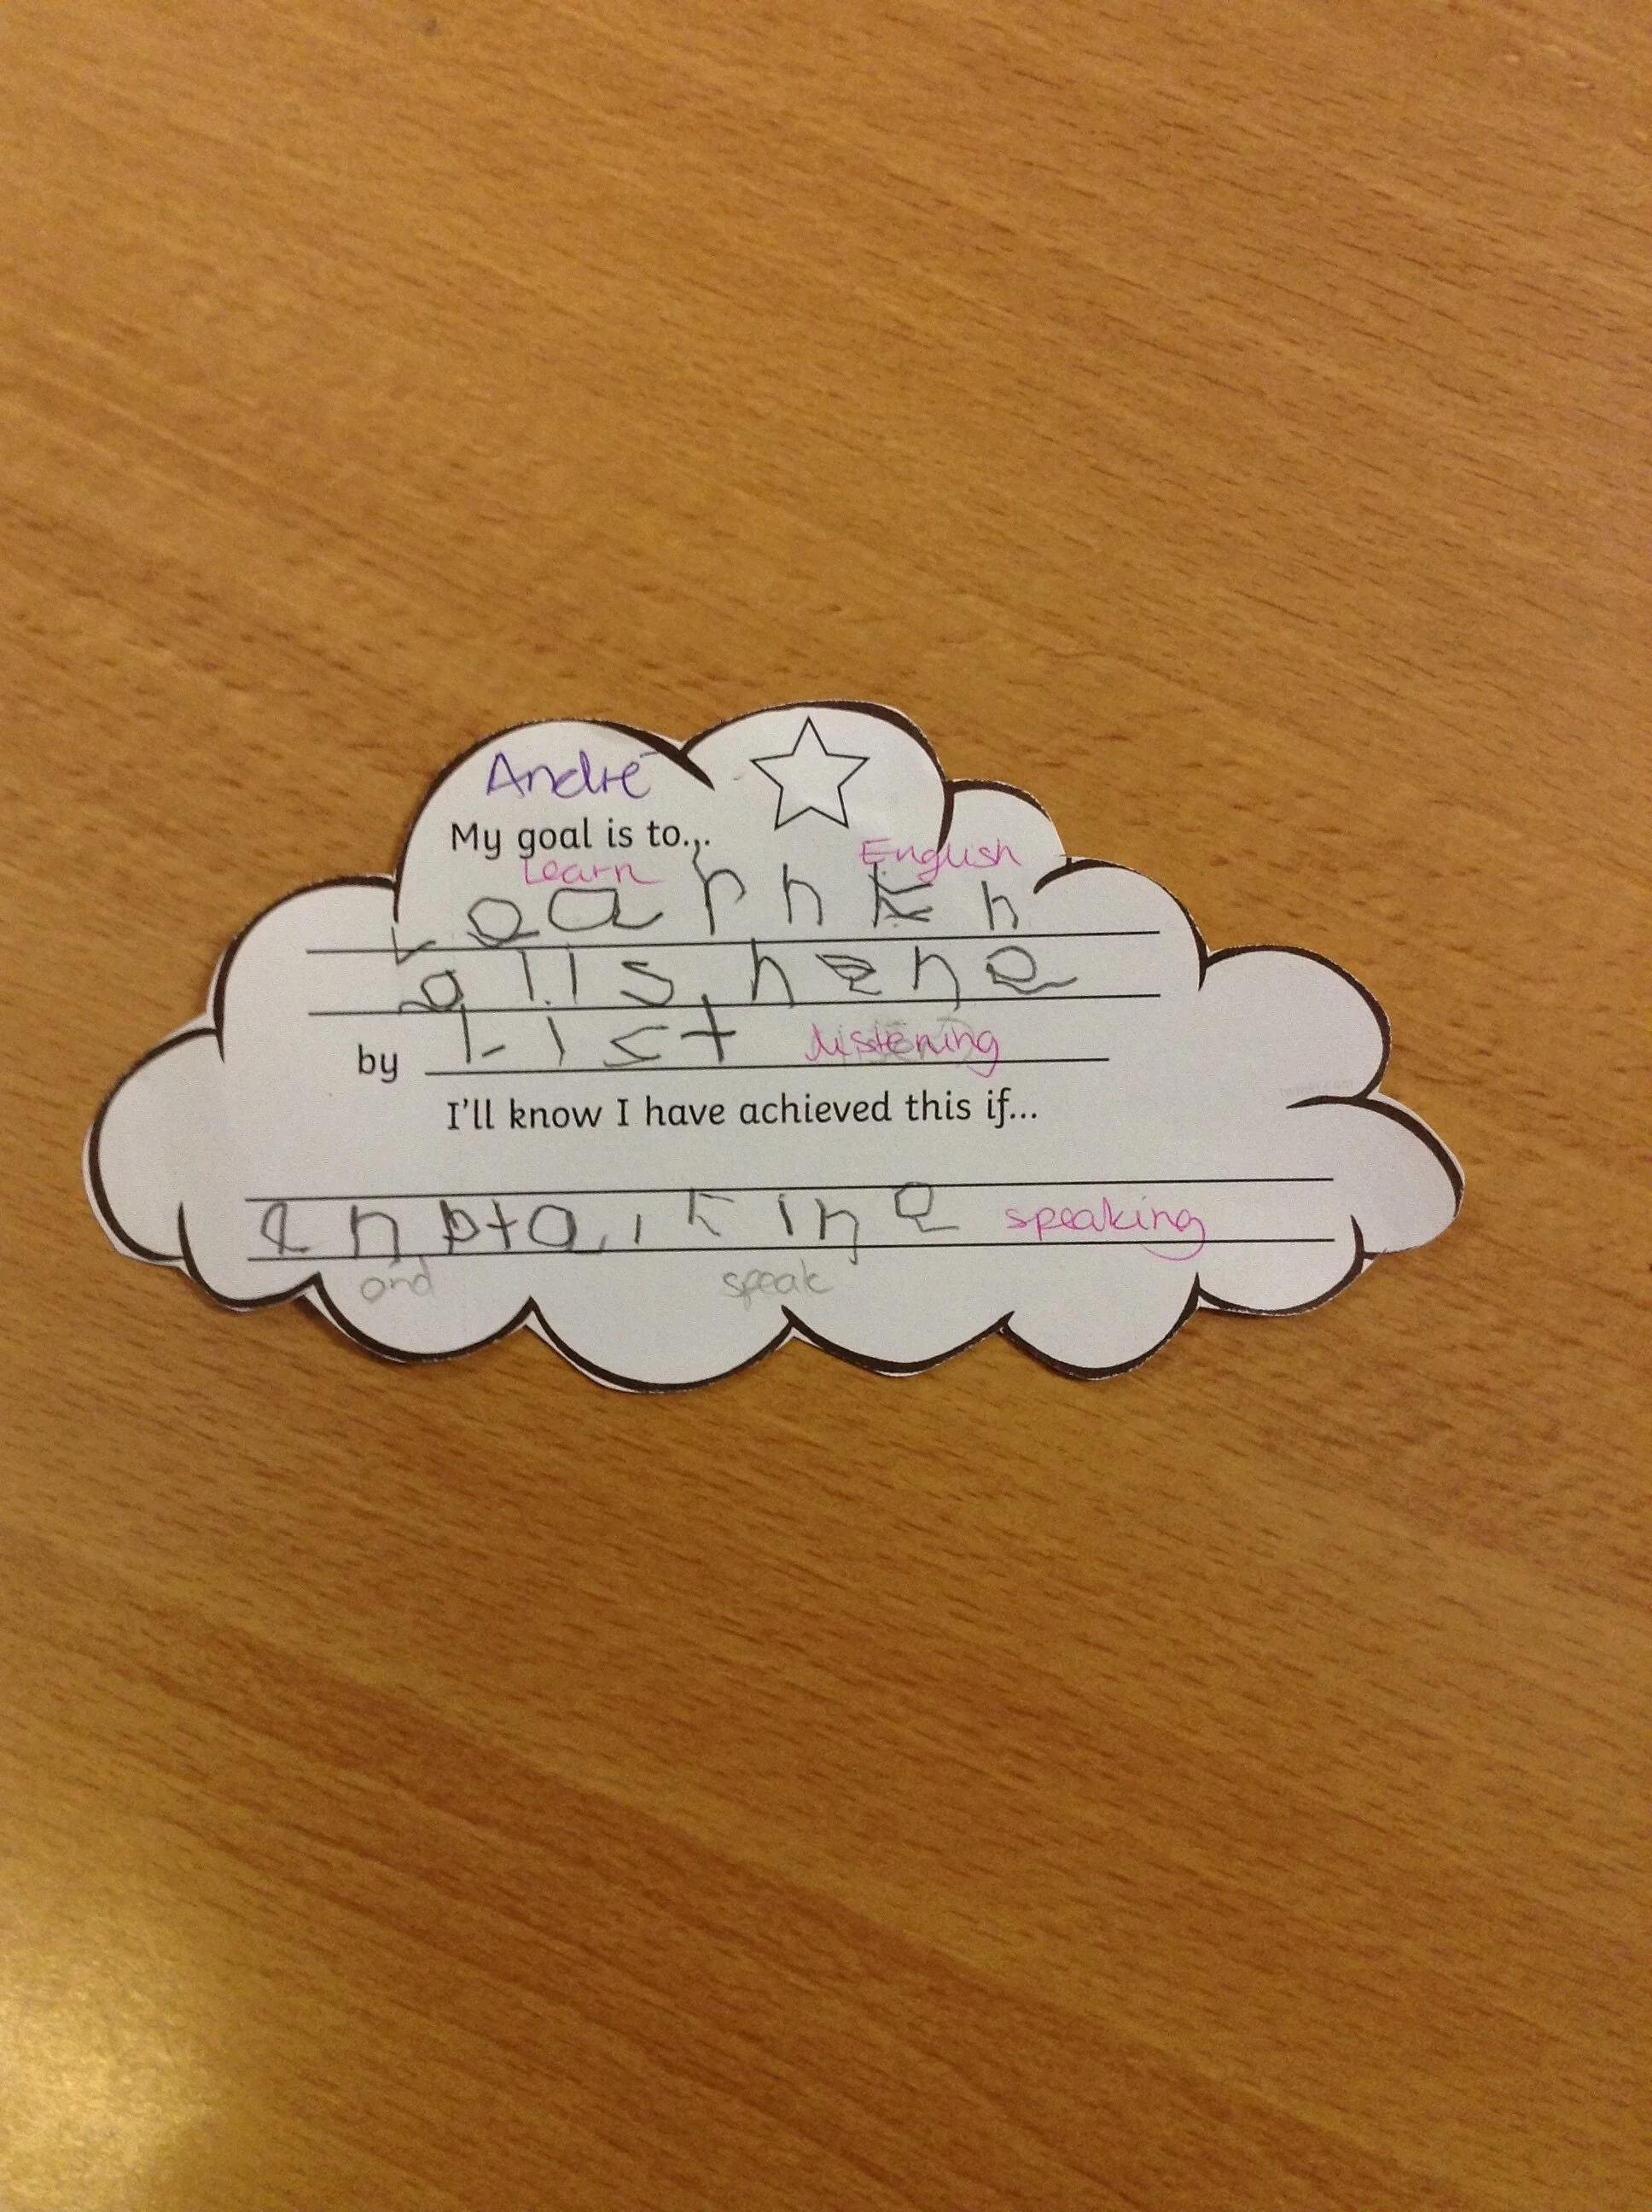 André
My goal is to...
Learn English
Learn En
glish
by List listening
I'll know I have achieved this if...
speaking
and speak